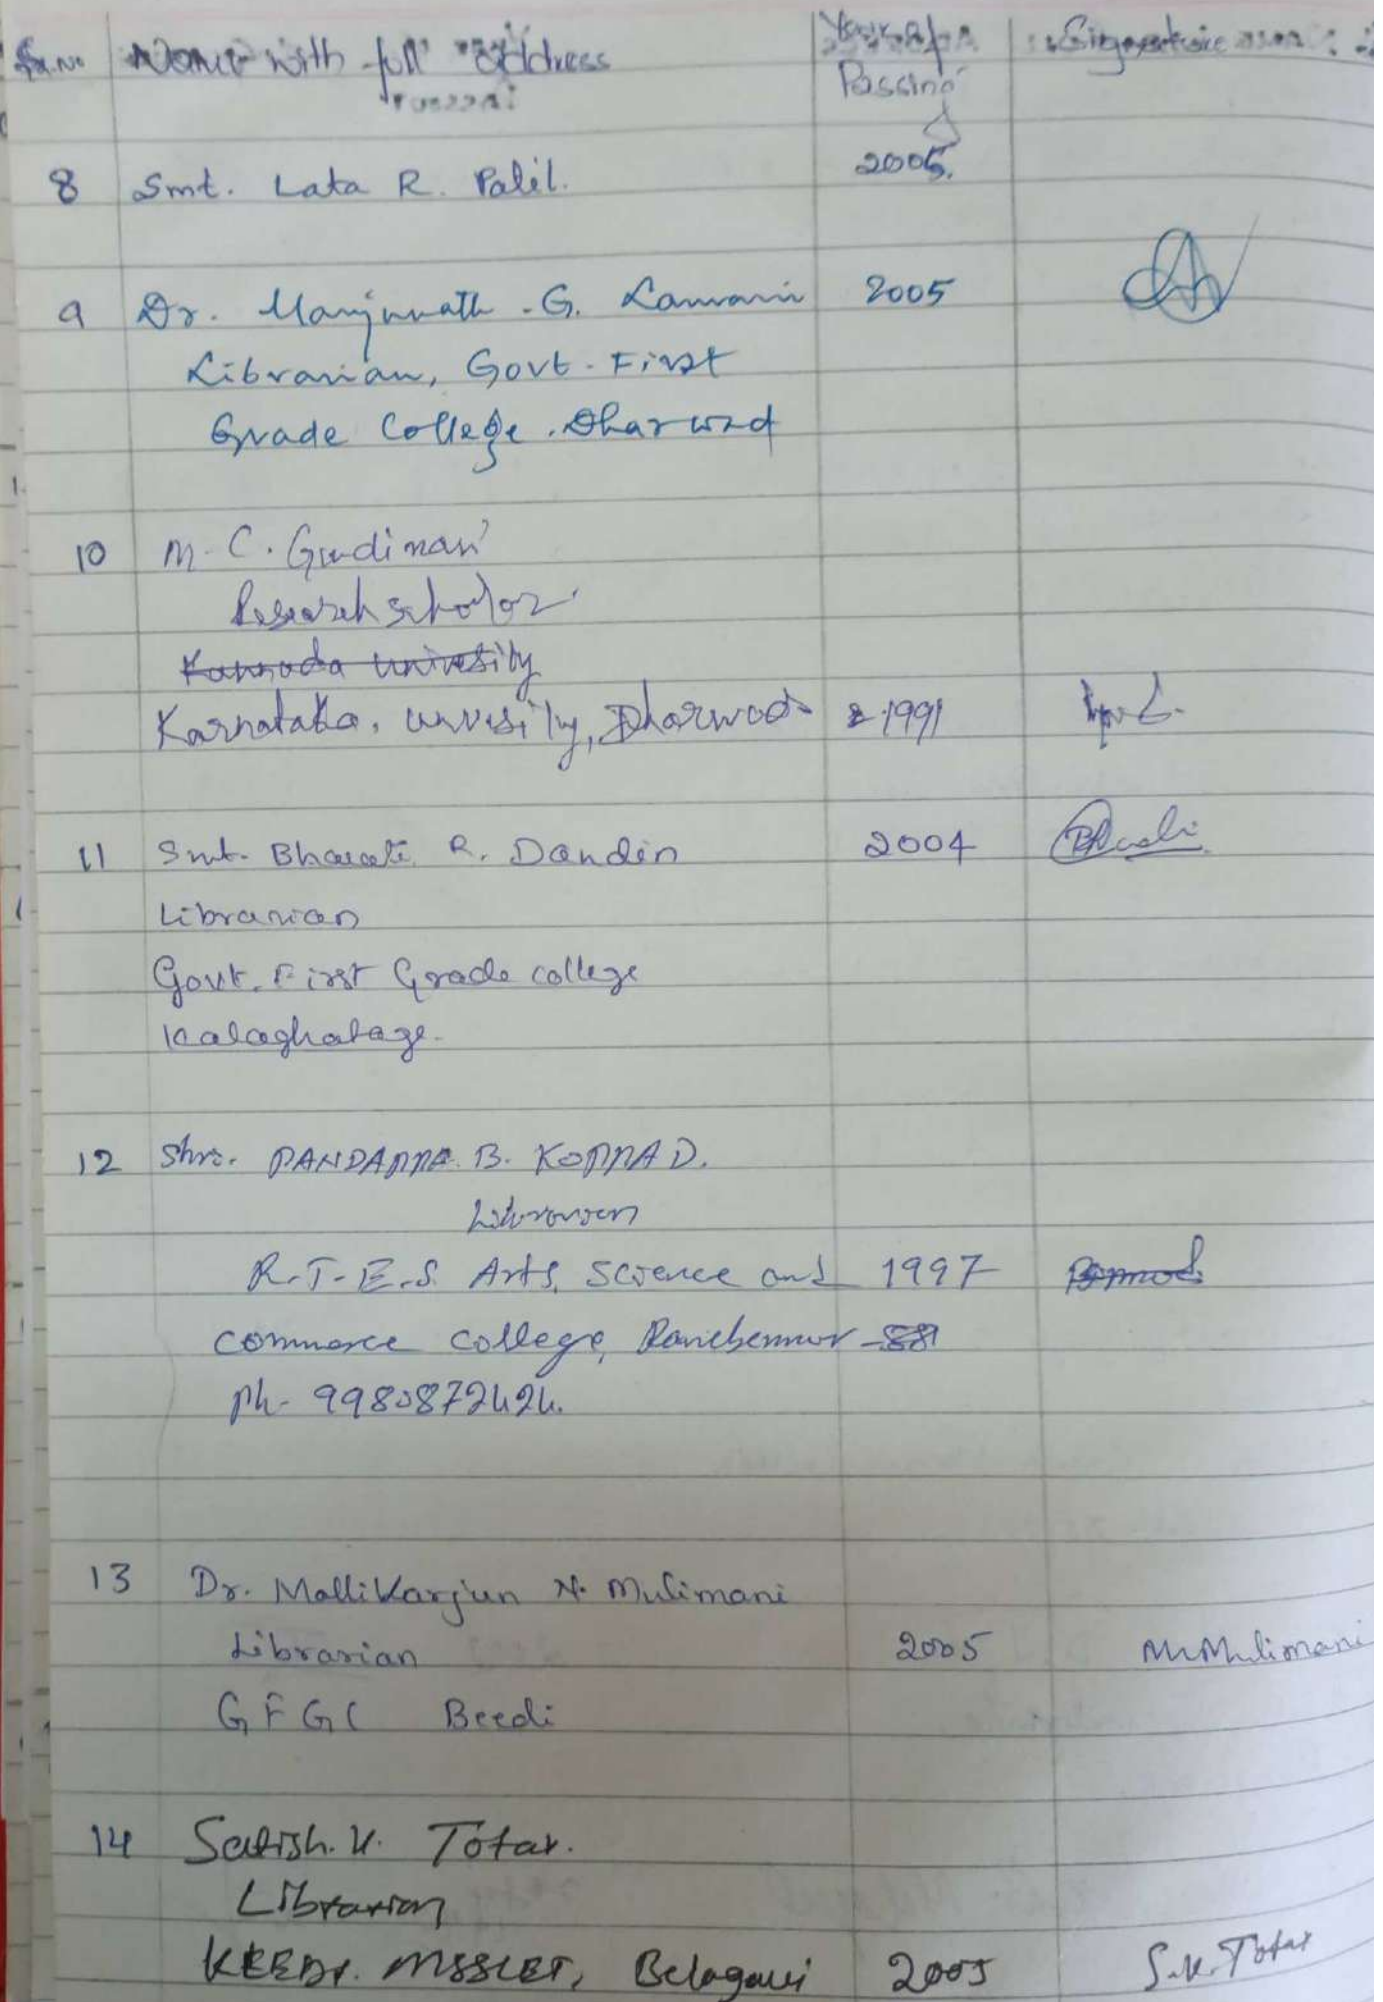 Sr.No Name with full address Year of Passing Signature
8 Smt. Lata R. Patil. 2005.
9 Dr. Manjunath .G. Lamani 2005
Librarian, Govt. First
Grade College. Dharwad
10 M. C. Gudimani
Research scholar.
Kannada Univesity
Karnataka, Univesity, Dharwad 1991
11 Smt. Bharati R. Dandin 2004
Librarian
Govt. First Grade college
Kalaghatage.
12 Shri. PANDAPPA. B. KOPPAD.
Librarian
R.T.E.S. Arts, Science and 1997
commerce college, Ranebennur
Ph- 9980872424.
13 Dr. Mallikarjun N. Mulimani
Librarian 2005 M Mulimani
GFGC Beedi
14 Satish. K. Totar.
Librarian
Belagavi 2005 S.K. Totar